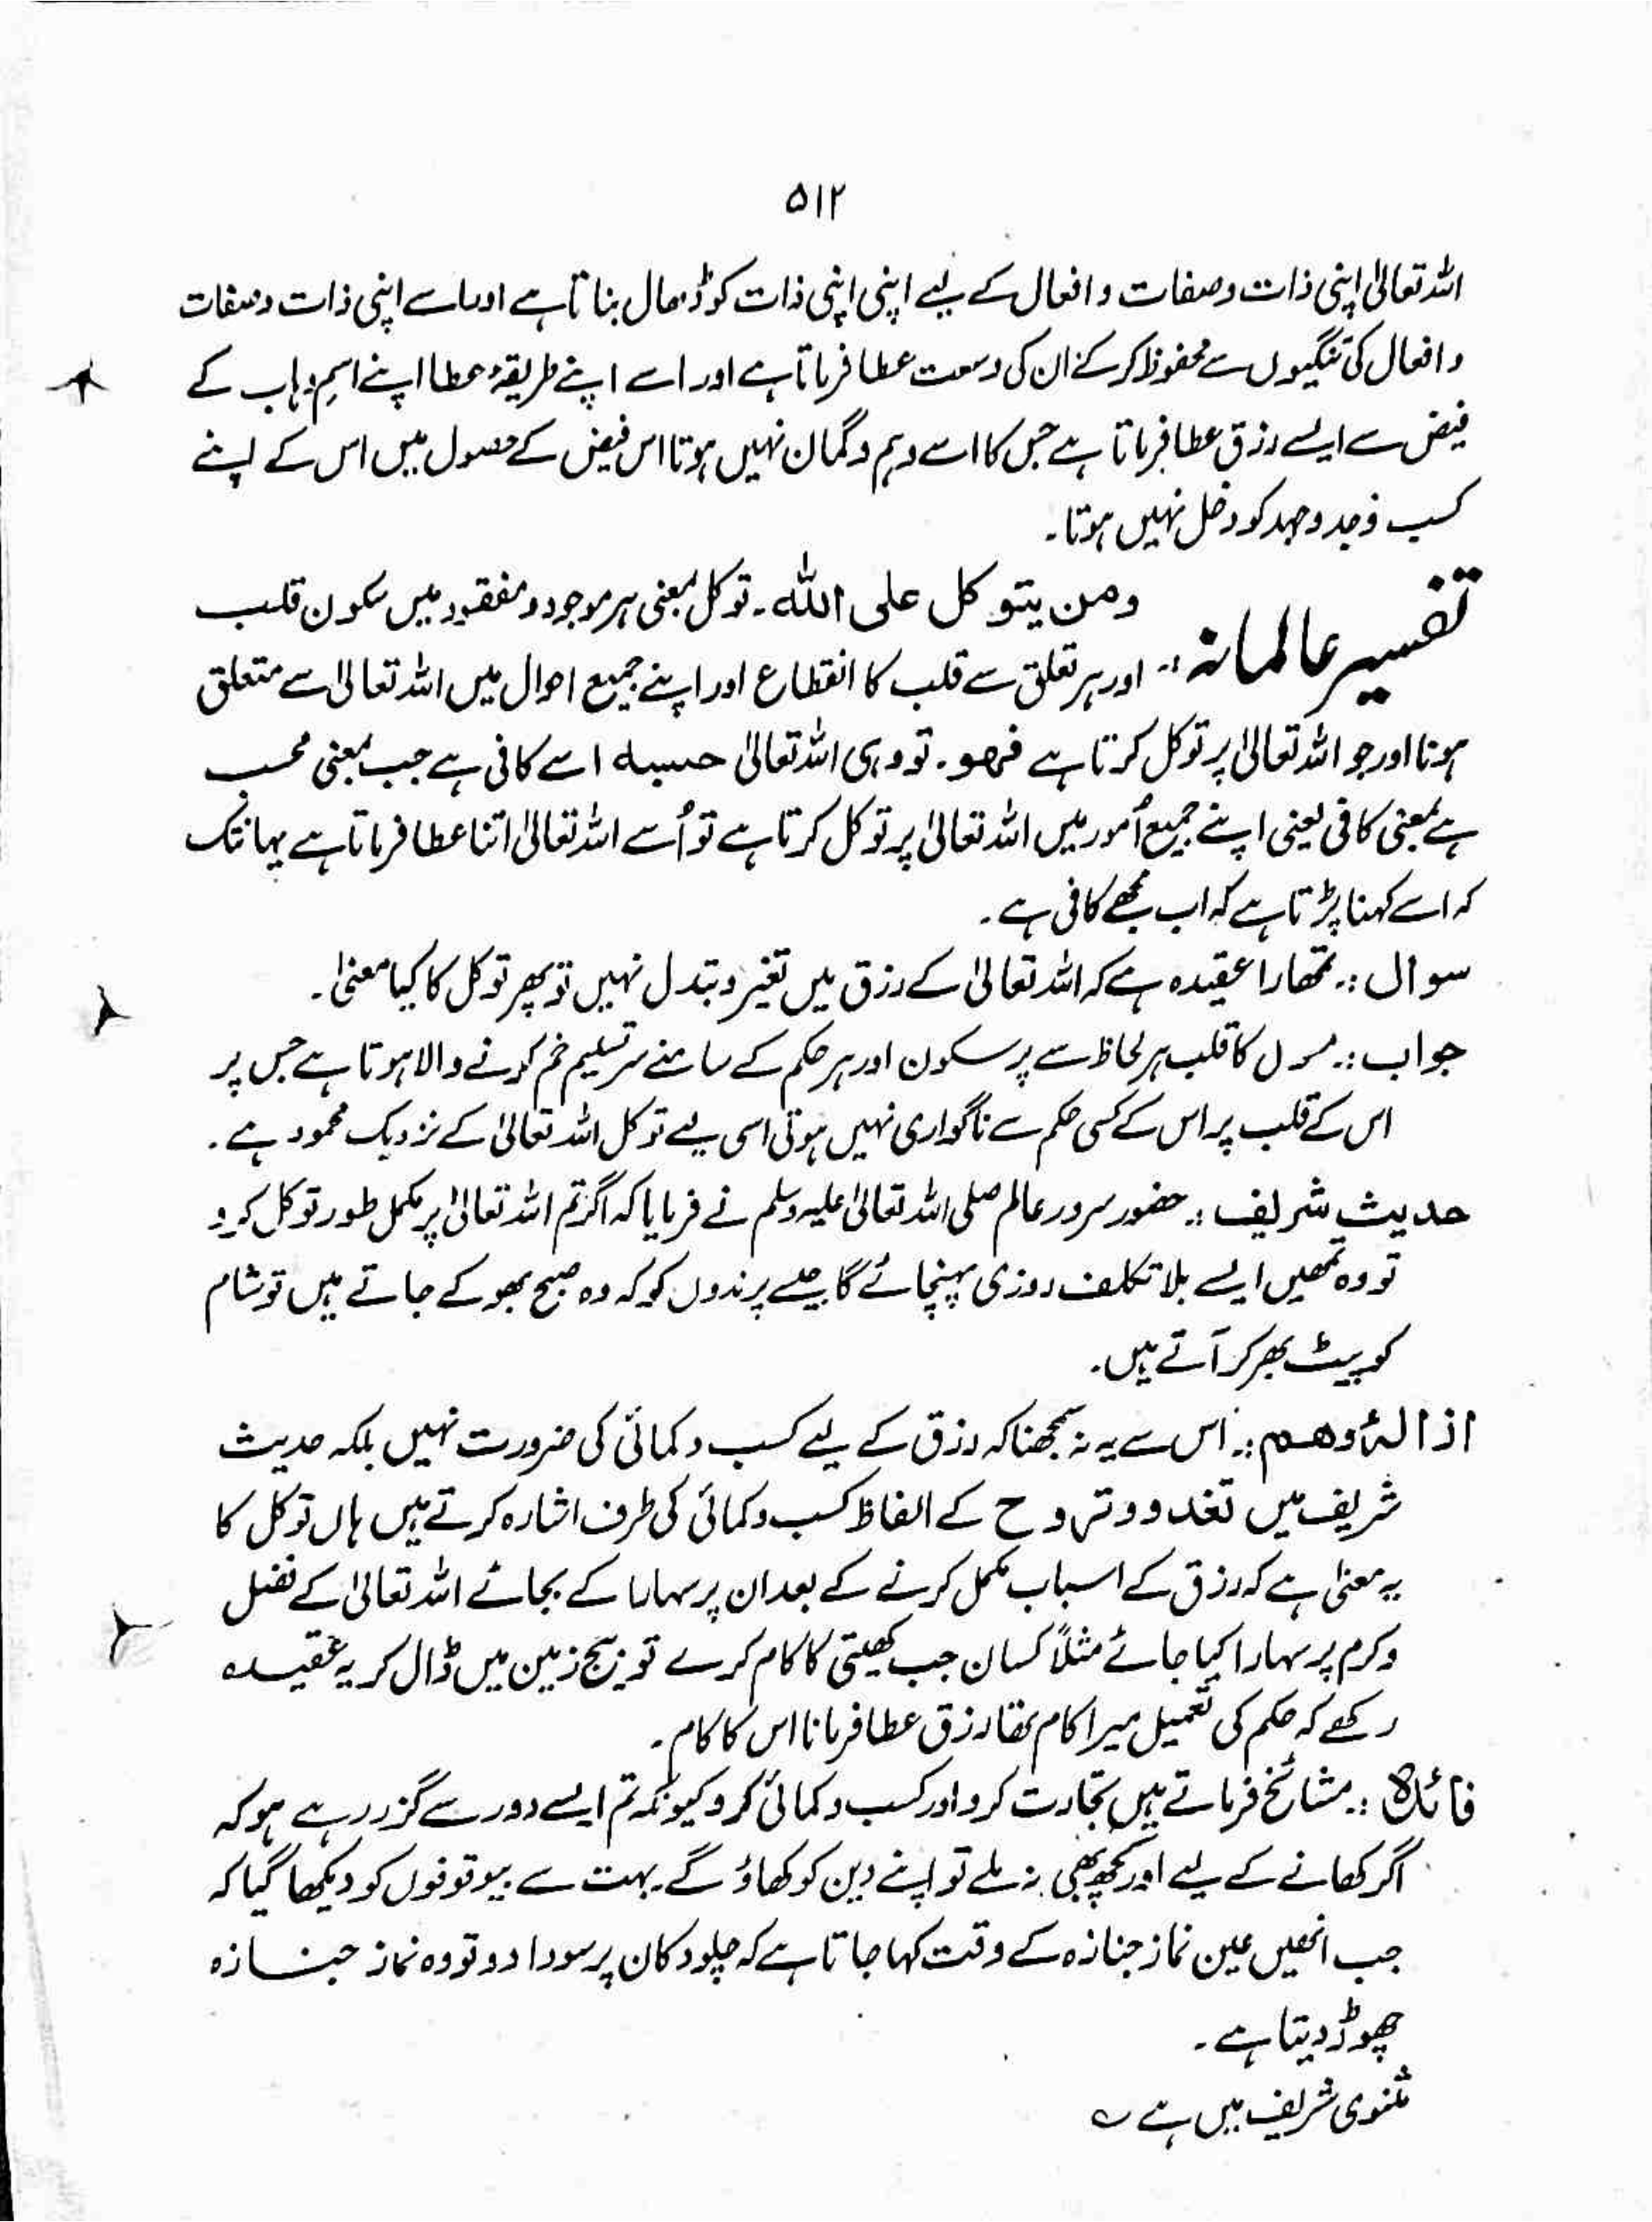 ۵۱۲
اللہ تعالیٰ اپنی ذات وصفات و افعال کے لیے اپنی اپنی ذات کو ڈھال بناتا ہے اور اسے اپنی ذات وصفات
و افعال کی تنگیوں سے محفوظ کر کے ان کی وسعت عطا فرماتا ہے اور اسے اپنے طریقۂ عطا اپنے اسمِ وہاب کے
فیض سے ایسے رزق عطا فرماتا ہے جس کا اسے وہم و گمان نہیں ہوتا اس فیض کے حصول میں اس کے اپنے
کسب و جد و جہد کو دخل نہیں ہوتا۔
تفسیر عالمانہ :۔ ومن یتوکل علی اللہ۔ توکل بمعنی ہر موجود و مفقود میں سکون قلب
اور ہر تعلق سے قلب کا انقطاع اور اپنے جمیع احوال میں اللہ تعالیٰ سے متعلق
ہونا اور جو اللہ تعالیٰ پر توکل کرتا ہے فھو۔ تو وہی اللہ تعالیٰ حسبہ اسے کافی ہے حسب بمعنی محسب
ہے بمعنی کافی یعنی اپنے جمیع اُمور میں اللہ تعالیٰ پر توکل کرتا ہے تو اُسے اللہ تعالیٰ اتنا عطا فرماتا ہے یہانتک
کہ اسے کہنا پڑتا ہے کہ اب مجھے کافی ہے۔
سوال :۔ تمھارا عقیدہ ہے کہ اللہ تعالیٰ کے رزق میں تغیر و تبدل نہیں تو پھر توکل کا کیا معنیٰ۔
جواب :۔ کا قلب ہر لحاظ سے پر سکون اور ہر حکم کے سامنے سر تسلیم خم کرنے والا ہوتا ہے جس پر
اس کے قلب پر اس کے کسی حکم سے ناگواری نہیں ہوتی اسی لیے توکل اللہ تعالیٰ کے نزدیک محمود ہے۔
حدیث شریف :۔ حضور سرور عالم صلی اللہ تعالیٰ علیہ وسلم نے فرمایا کہ اگر تم اللہ تعالیٰ پر مکمل طور توکل کرو
تو وہ تمھیں ایسے بلا تکلف روزی پہنچائے گا جیسے پرندوں کو کہ وہ صبح بھوکے جاتے ہیں تو شام
کو پیٹ بھر کر آتے ہیں۔
ازالۂ وھم :۔ اس سے یہ نہ سمجھنا کہ رزق کے لیے کسب و کمائی کی ضرورت نہیں بلکہ حدیث
شریف میں تغدو وتروح کے الفاظ کسب و کمائی کی طرف اشارہ کرتے ہیں ہاں توکل کا
یہ معنیٰ ہے کہ رزق کے اسباب مکمل کرنے کے بعد ان پر سہارا کے بجائے اللہ تعالیٰ کے فضل
وکرم پر سہارا کیا جائے مثلاً کسان جب کھیتی کا کام کرے تو بیج زمین میں ڈال کر یہ عقیدہ
رکھے کہ حکم کی تعمیل میرا کام تھا رزق عطا فرمانا اس کا کام۔
فائدہ :۔ مشائخ فرماتے ہیں تجارت کرو اور کسب و کمائی کرو کیونکہ تم ایسے دور سے گزر رہے ہو کہ
اگر کھانے کے لیے اور کچھ بھی نہ ملے تو اپنے دین کو کھاؤ گے بہت سے بیوقوفوں کو دیکھا گیا کہ
جب انھیں عین نماز جنازہ کے وقت کہا جاتا ہے کہ چلو دکان پر سودا دو تو وہ نماز جنازہ
چھوڑ دیتا ہے۔
مثنوی شریف میں ہے ؎